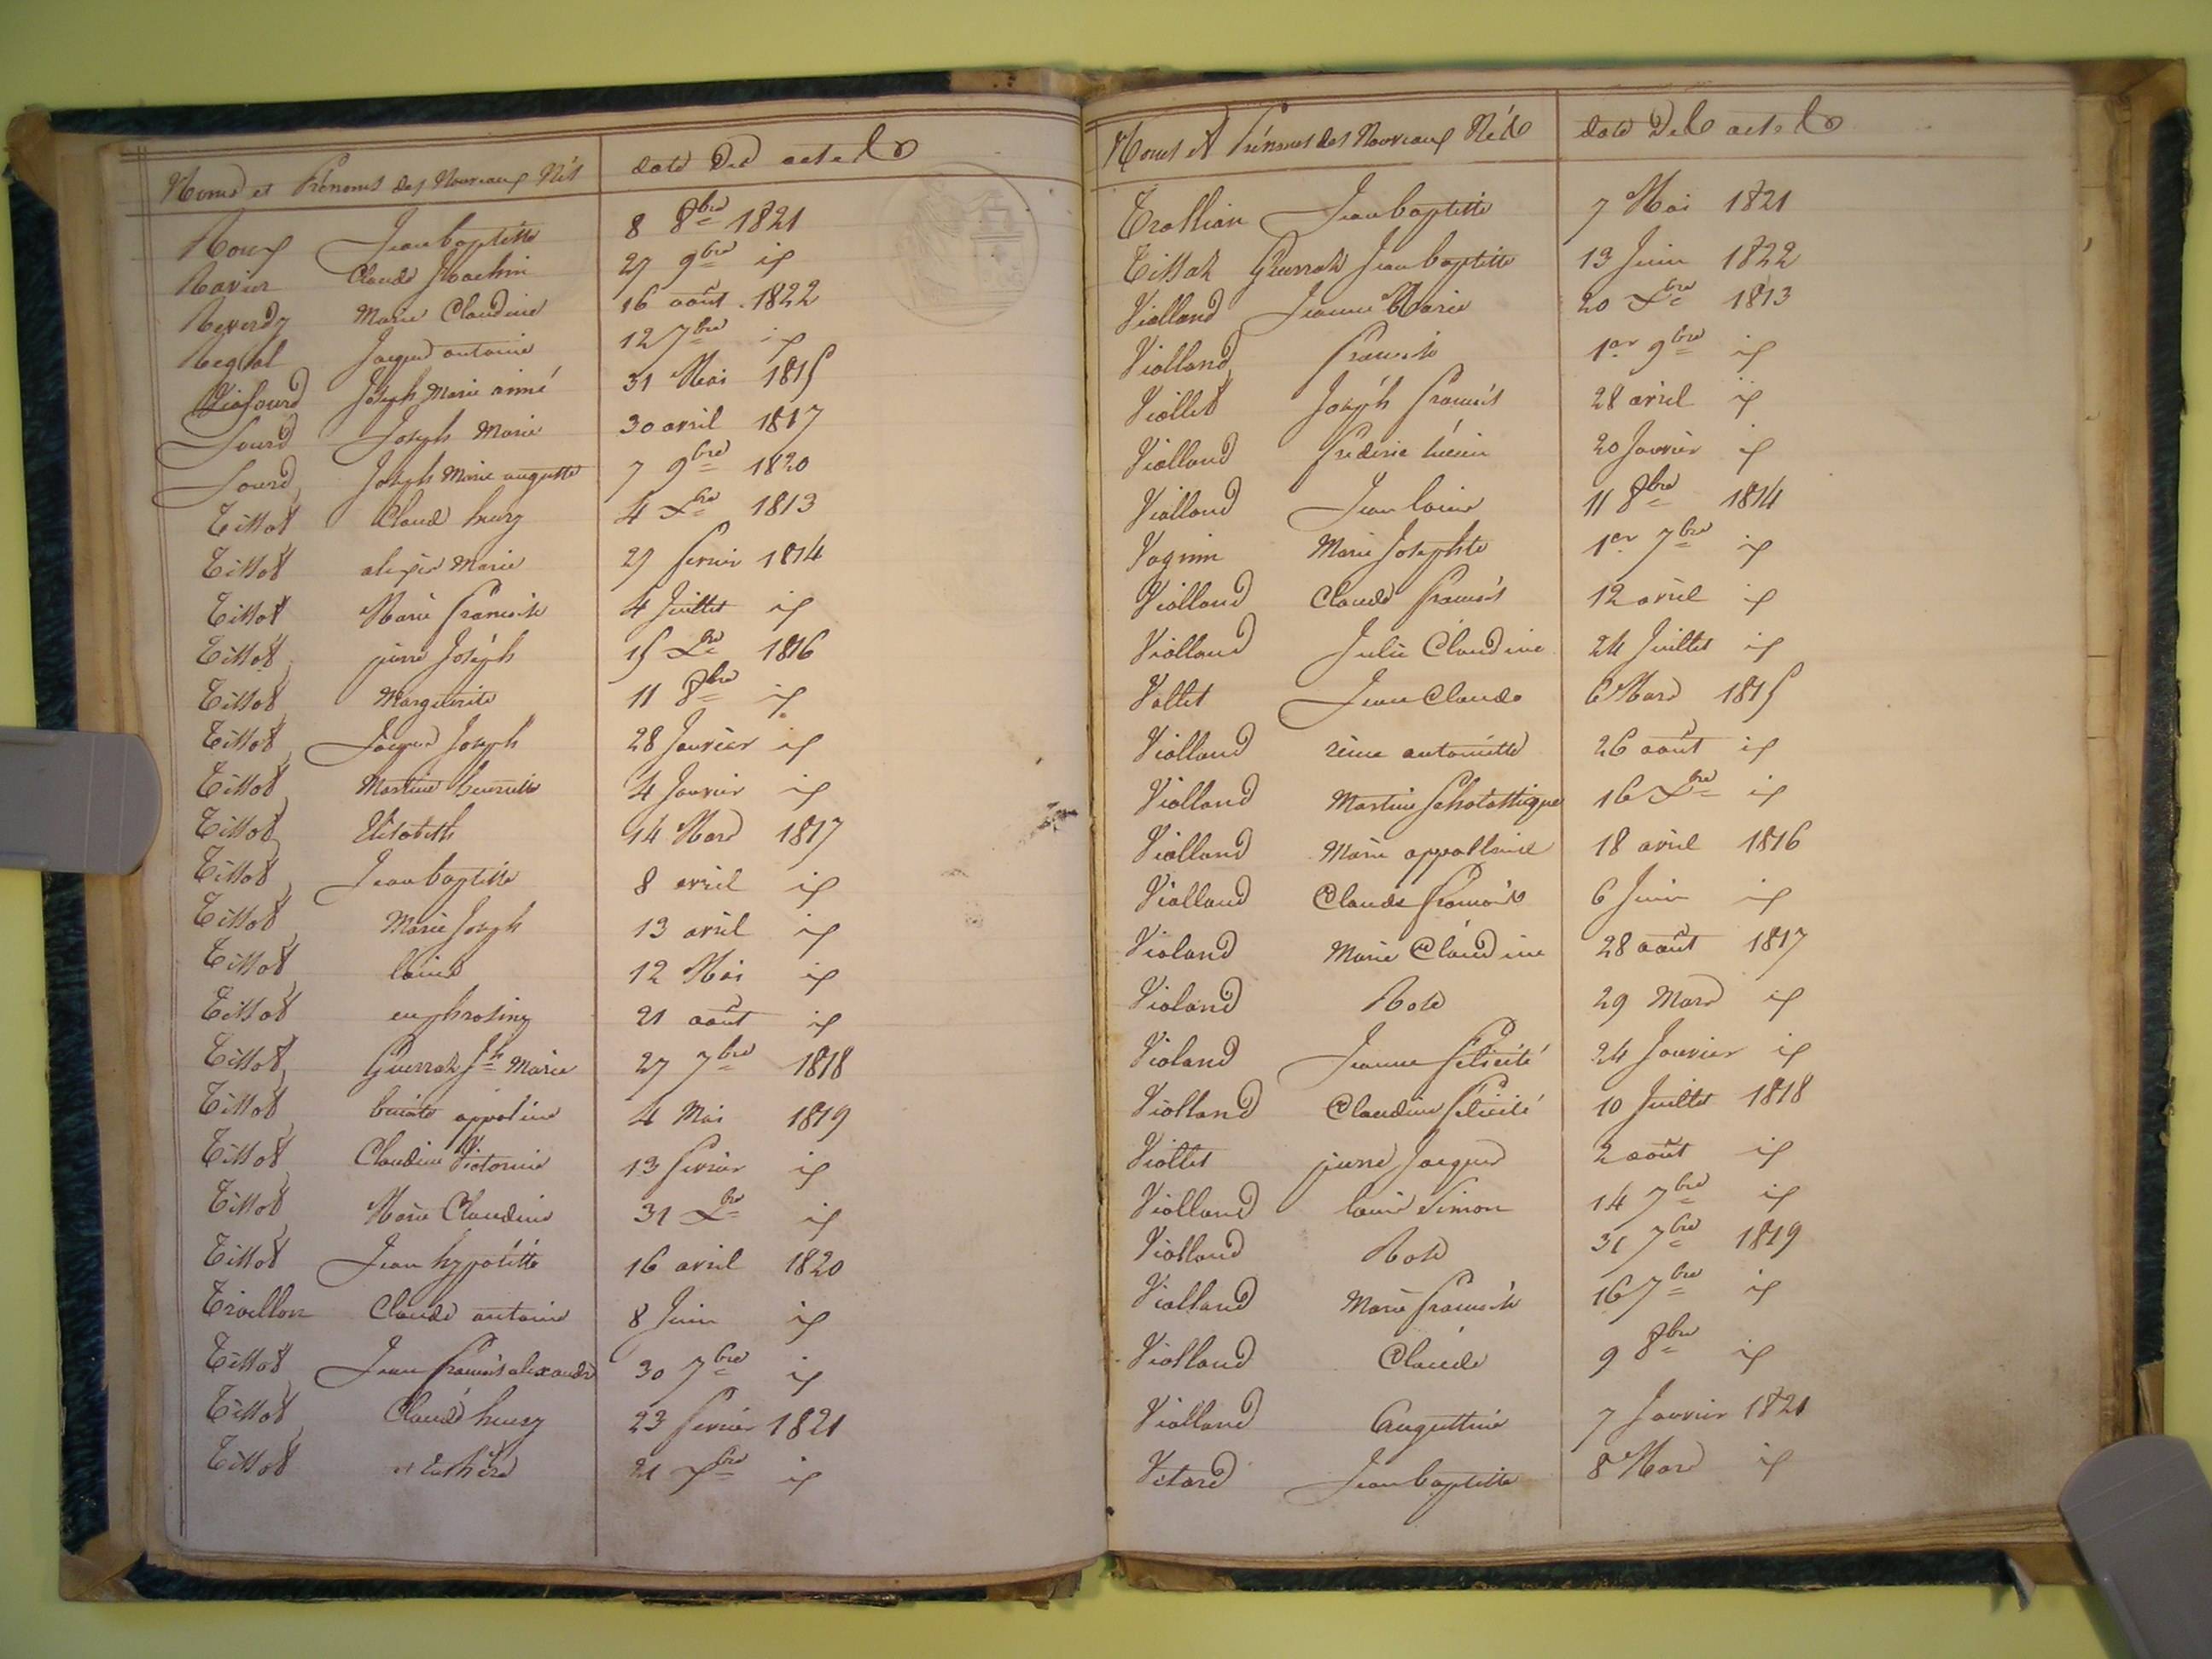 Noms et Prénoms des Nouveaux Nés date des actes
Roux Jean baptiste 8 8bre 1821
Ravier Claude Joachin 27 9bre id
Reverdy Marie Claudine 16 août 1822
Jaques antoine 12 7bre id
Joseph Marie aimé 31 Mai 1815
Sourd Joseph Marie 30 avril 1817
Sourd Joseph Marie auguste 7 9bre 1820
Tissot Claude henry 4 Xbre 1813
Tissot alexis Marie 27 fevrier 1814
Tissot Marie francoise 4 Juillet id
Tissot pierre Joseph 15 Xbre 1816
Tissot Marguerite 11 8bre id
Tissot Jaques Joseph 28 Janvier id
Tissot Martine henriette 4 Janvier id
Tissot Elisabeth 14 Mars 1817
Tissot Jean baptiste 8 avril id
Tissot Marie Joseph 13 avril id
Tissot louise 12 Mai id
Tissot euphrosine 21 août id
Tissot Guerraz Jh Marie 27 7bre 1818
Tissot benoite appoline 4 Mai 1819
Tissot Claudine Victorine 13 fevrier id
Tissot Marie Claudine 31 Xbre id
Tissot Jean hypolitte 16 avril 1820
Trivellon Claude antoine 8 Juin id
Tissot Jean francois alexandre 30 7bre id
Tissot Claude henry 23 fevrier 1821
Tissot 21 Xbre id
Noms et Prénoms des Nouveaux Nés date des actes
Trollian Jean baptiste 7 Mai 1821
Tissot Guerraz Jean baptiste 13 Juin 1822
Violland Jeanne Marie 20 Xbre 1813
Violland francoise 1er 9bre id
Viollet Joseph francois 28 avril id
Violland frederic lucien 20 Janvier id
Violland Jean louis 11 8bre 1814
Vagnin Marie Josephte 1er 7bre id
Violland Claude francois 12 avril id
Violland Julie Claudine 24 Juillet id
Vallet Jean Claude 6 Mars 1815
Violland reine antoinette 26 août id
Violland Martine Scholastique 16 Xbre id
Violland Marie appollonie 18 avril 1816
Violland Claude francois 6 Juin id
Violand Marie Claudine 28 août 1817
Violand Rose 29 Mars id
Violand Jeanne felicité 24 Janvier id
Violland Claudine felicité 10 Juillet 1818
Viollet pierre Jacques 2 août id
Violland louis Simon 14 7bre id
Violland Rose 31 7bre 1819
Violland Marie francoise 16 7bre id
Violland Claude 9 8bre id
Violland Augustine 7 Janvier 1821
Vitard Jean baptiste 8 Mars id